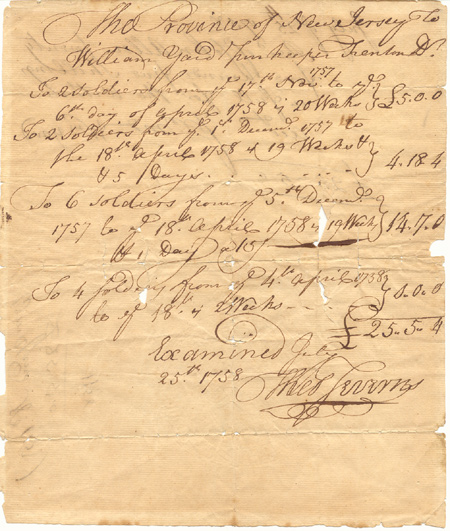 The Province of New Jersey To
William Yard Innkeeper Trenton Dr.
To 2 Soldiers from ye 17th Nov. 1757 to ye
6th day of April 1758 is 20 Weeks } £5.0.0
To 2 Soldiers from ye 1st Decemr. 1757 to
the 18th April 1758 is 19 Weeks &
& 5 Days } 4.18.4
To 6 Soldiers from ye 5th Decemr.
1757 to ye 18th April 1758 is 19 Weeks } 14.7.0
& 1 Day at 15/
To 4 Soldiers from ye 4th April 1758
to ye 18th is 2 Weeks } 1.0.0
£ 25.5.4
Examined July
25th 1758
Theo Severns